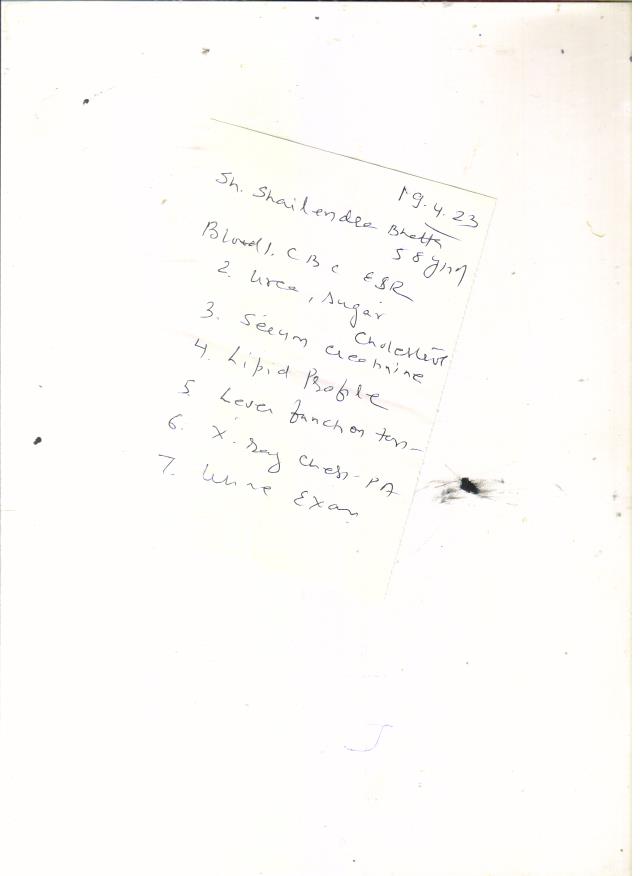 19.4.23
Sh. Shailendra Bhatta
58 yrs
Blood 1. CBC ESR
2. Urea, Sugar
Cholestrol
3. Serum creatinine
4. Lipid Profile
5. Lever function test
6. X-ray Chest-PA
7. Urine Exam